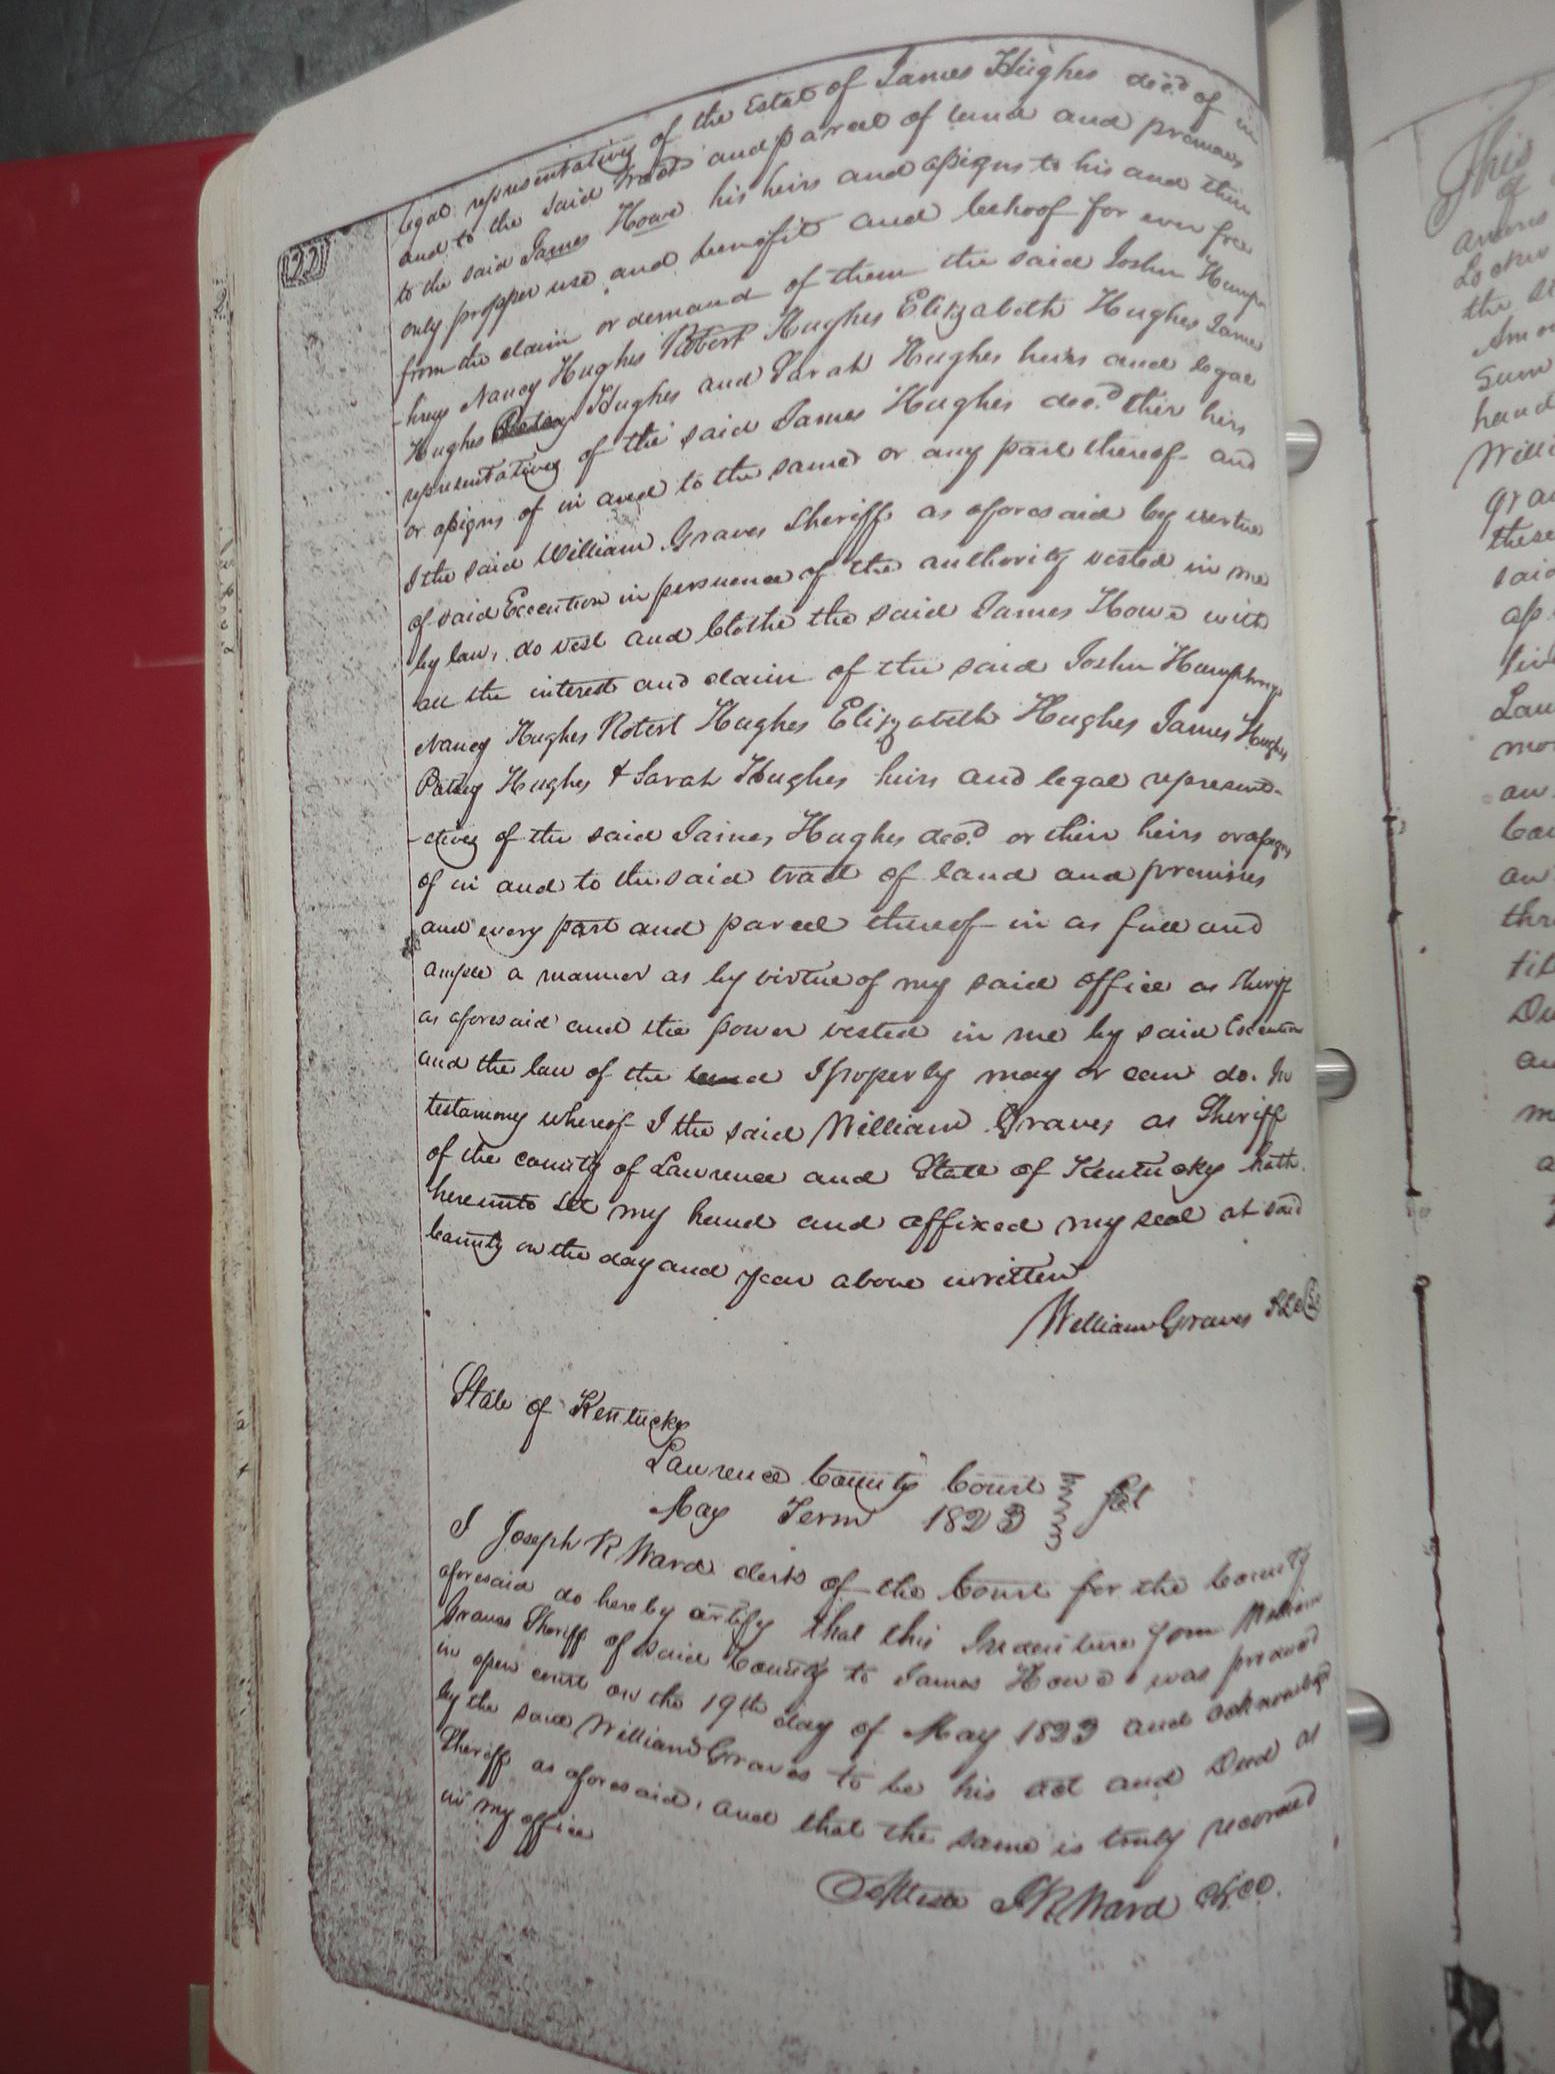 22
legal representatives of the Estate of James Hughes decd of in
and to the said tract and parcel of land and premises
to the said James Howe his heirs and assigns to his and their
only propper use and benefit and behoof for ever free
from the claim or demand of them the said Joshu Humph
-hreys Nancy Hughes Robert Hughes Elizabeth Hughes James
Hughes Patsy Hughes and Sarah Hughes heirs and legal
representatives of the said James Hughes decd. thier hirs
or assigns of in and to the same or any part thereof and
I the said William Graves Sheriff as aforesaid by vertue
of said Execution in persuence of the authority vested in me
by law, do vest and Clothe the said James Howe with
all the interest and claim of the said Joshu Humphreys
Nancy Hughes Robert Hughes Elizabeth Hughes James Hughes
Patsey Hughes & Sarah Hughes heirs and legal represent-
-atives of the said James Hughes decd. or their heirs or assigns
of in and to the said tract of land and premises
and every part and parcel thereof in as full and
ample a manner as by virtue of my said office as Sheriff
as aforesaid and the power vested in me by said Execution
and the law of the land I properly may or can do. In
testamony whereof I the said William Graves as Sheriff
of the county of Lawrence and State of Kentucky hath
hereunto set my hand and affixed my seal at said
County on the day and year above written
William Graves SLC
State of Kentucky
Lawrence County Court Sct
May Term 1823
I Joseph R Ward clerk of the Court for the County
aforesaid do hereby certify that this Indenture from William
Graves Sheriff of said County to James Howe was produced
in open court on the 19th day of May 1823 and acknowledged
by the said William Graves to be his act and Deed as
Sheriff as aforesaid, and that the same is truly recorded
in my office
Atteste J R Ward clk
This
of
the
Sum
hand
these
said
Lau
an
an
thr